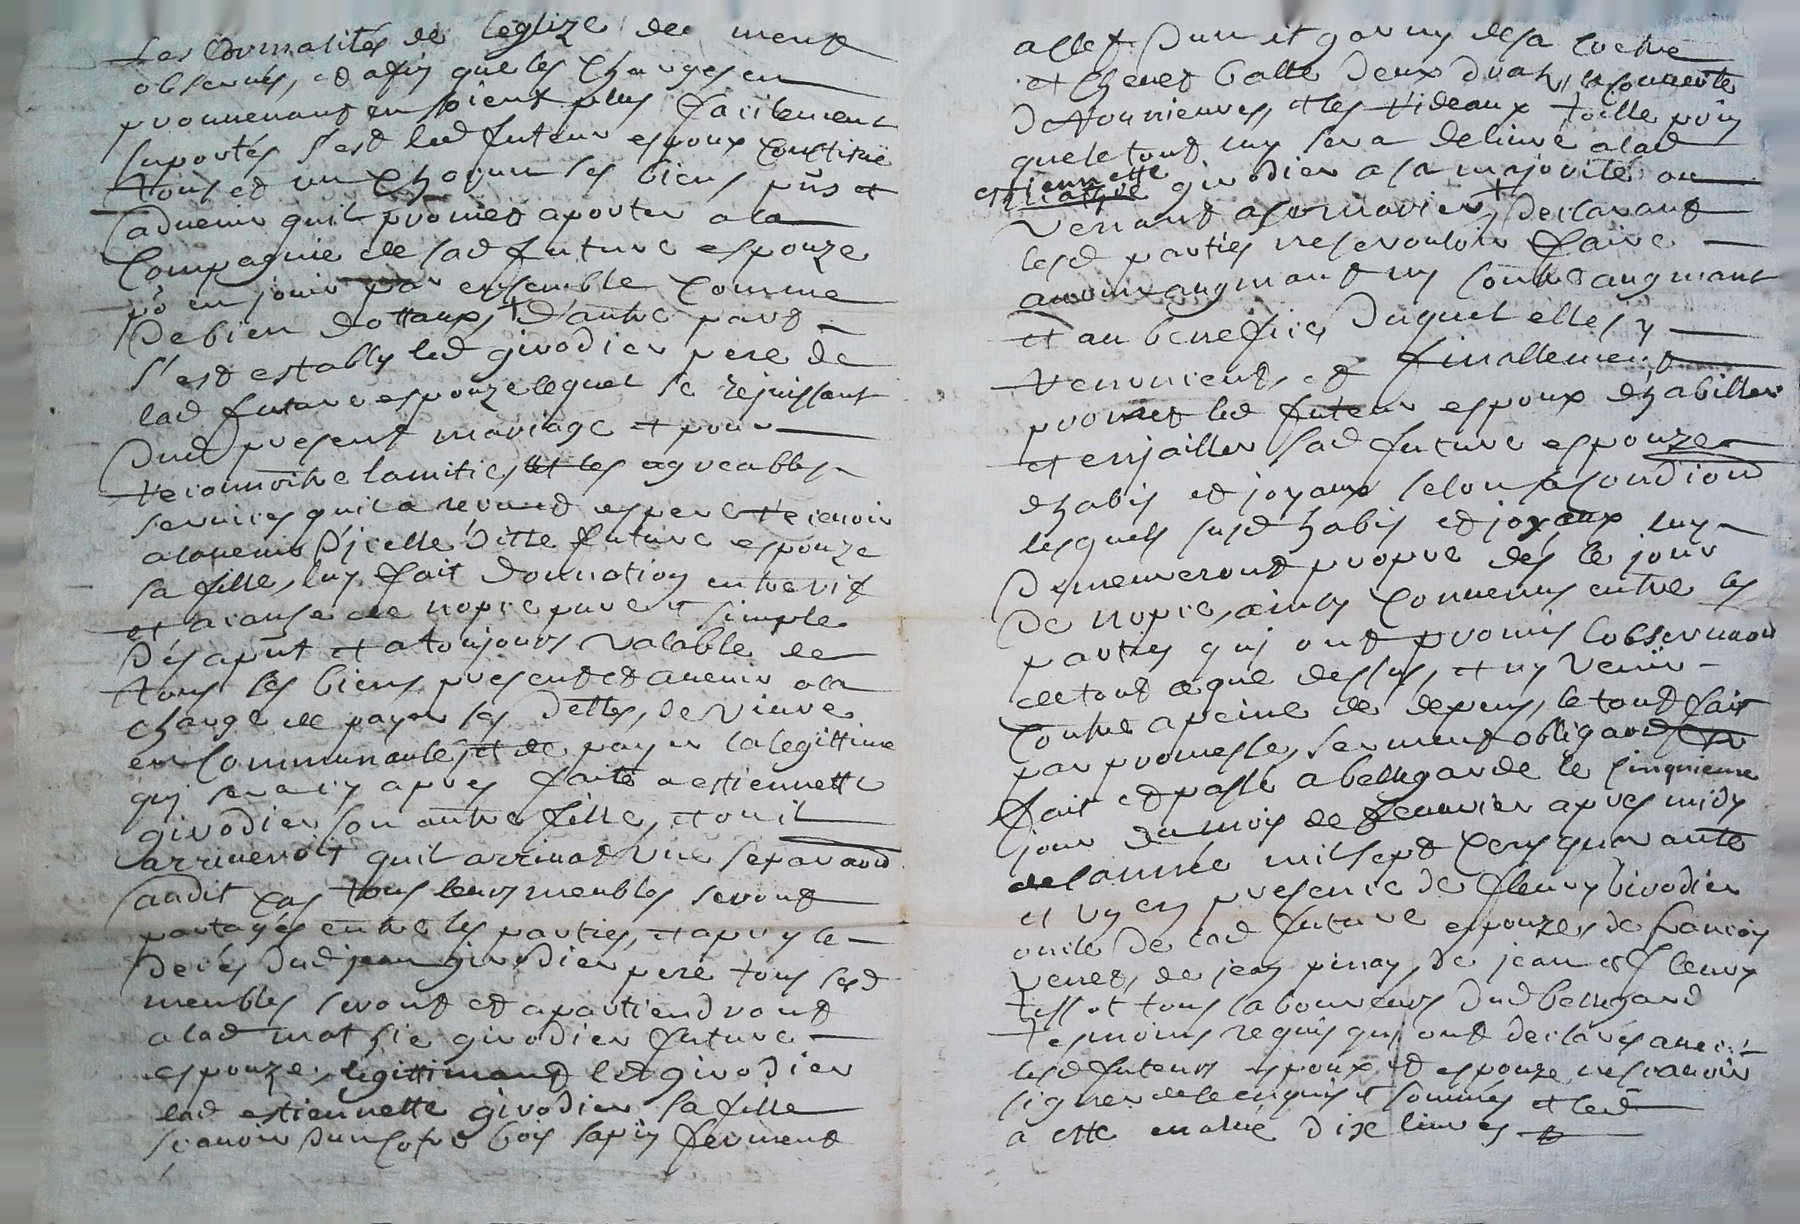 Les formalités de leglize deument
observés, et afin que les charges en
provenant en soient plus facilement
suportés s'est led futeur espoux constitué
tous et un chacun ses biens pñs et
advenir quil promet aporter a la
compagnie de sad future espouze
po en jouir par ensemble comme
de bien dottaux, + d'autre part
s'est estably led girodier pere de
lad future espouze lequel se rejuissant
dud present mariage et pour
reconnoitre lamitié, et les agreables
services quil a receu et espere recevoir
alavenir d'icelle ditte future espouze
sa fille, luy fait donnation entre vif
et a cause de nopce pure et simple
dés apñt et a toujours valable de
tous ses biens present et avenir a la
charge de payer ses dettes, de vivre
en communauté, et de payer la legittime
qui sera cy apres faite a estiennette
girodier son autre fille, et ou il
arriveroit quil arrivat une separaõn
audit cas tous leurs meubles seront
partagés entre les parties, et apres le
decés dud jean girodier pere tous sesd
meubles seront et apartiendront
a lad mathie girodier future
espouze, legittimant led girodier
lad estiennette girodier sa fille
scavoir dun cofre bois sapin ferment
a clef dun lit garny de sa
et chevet balle deux draps, la couverte
, et les rideaux toille poin
que le tout luy sera delivré a lad
estiennette girodier a sa majorité ou
venant a se marier, + declarant
lesd parties ne se vouloir faire
aucun augmant ny contre augmant
et au benefice duquel elles y
renoncent, et finallement
promet led futeur espoux d'habiller
et enjailler sad future espouze
d'habis et joyaux selon sa condiõn
lesquels susd habis et joyaux luy
demeureront propre dés le jour
de nopce, ainsy convenus entre les
parties qui ont promis lobservaõn
de tout ce que dessus, et ny venir
contre a peine de depens, le tout fait
par promesse, serment obligaõn
fait et passé a bellegarde le cinquieme
jour du mois de feuvrier apres midy
de lannée mil sept cens quarante
et un en presence de fleury Girodier
oncle de lad future espouze, de francois
venet, de jean pinay, de jean et fleury
tissot tous laboureurs dud bellegard
tesmoins requis qui ont declarés avec
lesd futeurs espoux et espouze ne scavoir
signer de ce enquis et sommés et led
a esté evalué dix livres